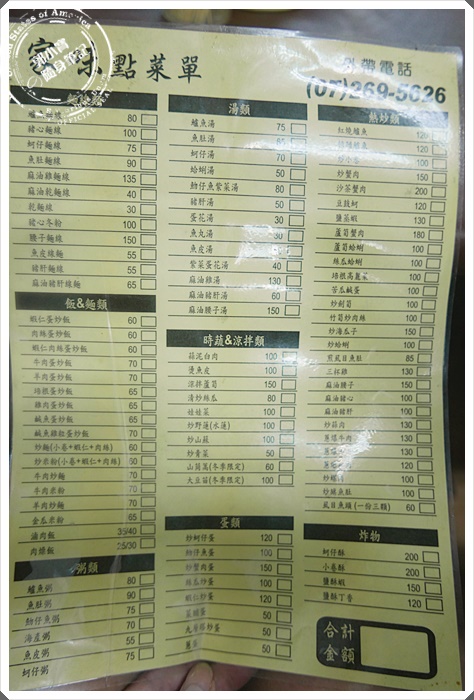 點菜單
外帶電話
(07)269-5626
麵線類
80
豬心麵線 100
蚵仔麵線 75
魚肚麵線 90
麻油雞麵線 135
麻油乾麵線 40
乾麵線 30
豬心冬粉 100
腰子麵線 150
魚皮線麵 55
豬肝麵線 55
麻油豬肝線麵 65
飯&麵類
蝦仁蛋炒飯 60
肉絲蛋炒飯 60
蝦仁肉絲蛋炒飯 60
牛肉蛋炒飯 70
羊肉蛋炒飯 70
培根蛋炒飯 60
雞肉蛋炒飯 60
鹹魚蛋炒飯 60
鹹魚雞粒蛋炒飯 70
炒麵(小卷+蝦仁+肉絲) 60
炒米粉(小卷+蝦仁+肉絲) 60
牛肉炒麵 70
牛肉炒粉 70
羊肉炒麵 70
金瓜米粉 65
滷肉飯 35/40
肉燥飯 25/30
粥類
鱸魚粥 80
魚肚粥 90
魩仔魚粥 70
海產粥 55
魚皮粥 55
蚵仔粥
湯類
鱸魚湯 75
魚肚湯 80
蚵仔湯 70
蛤蜊湯 50
魩仔魚紫菜湯 50
豬肝湯 50
蛋花湯 30
魚丸湯 30
魚皮湯 50
紫菜蛋花湯 40
麻油雞湯 130
麻油豬肝湯 60
麻油腰子湯 150
時蔬&涼拌類
蒜泥白肉 100
燙魚皮 100
涼拌蘆筍 150
清炒絲瓜 80
娃娃菜 100
炒野蓮(水蓮) 100
炒山蘇 100
炒青菜 50
山茼蒿(冬季限定) 60
大豆苗(冬季限定) 100
蛋類
炒蚵仔蛋 120
魩仔魚蛋 100
炒蟹肉蛋 150
絲瓜炒蛋 100
蝦仁炒蛋 120
菜脯蛋 50
九層塔炒蛋 50
蔥蛋 50
熱炒類
紅燒鱸魚 120
120
炒小卷 100
炒蟹肉 150
沙茶蟹肉 200
豆豉蚵 120
鹽蒸蝦 130
蘆筍蟹肉 180
蘆筍蛤蜊 100
絲瓜蛤蜊 100
培根高麗菜 100
苦瓜鹹蛋 100
炒劍筍 100
竹筍炒肉絲 100
炒海瓜子 150
炒蛤蜊 100
煎虱目魚肚 85
三杯雞 130
麻油腰子 150
麻油豬心 100
麻油豬肝 100
炒蒜肉 100
蔥爆牛肉 100
100
120
炒螺肉 100
炒鹹魚肚 100
虱目魚頭(一份三顆) 60
炸物
蚵仔酥 200
小卷酥 200
鹽酥蝦 150
鹽酥丁香 120
合計
金額